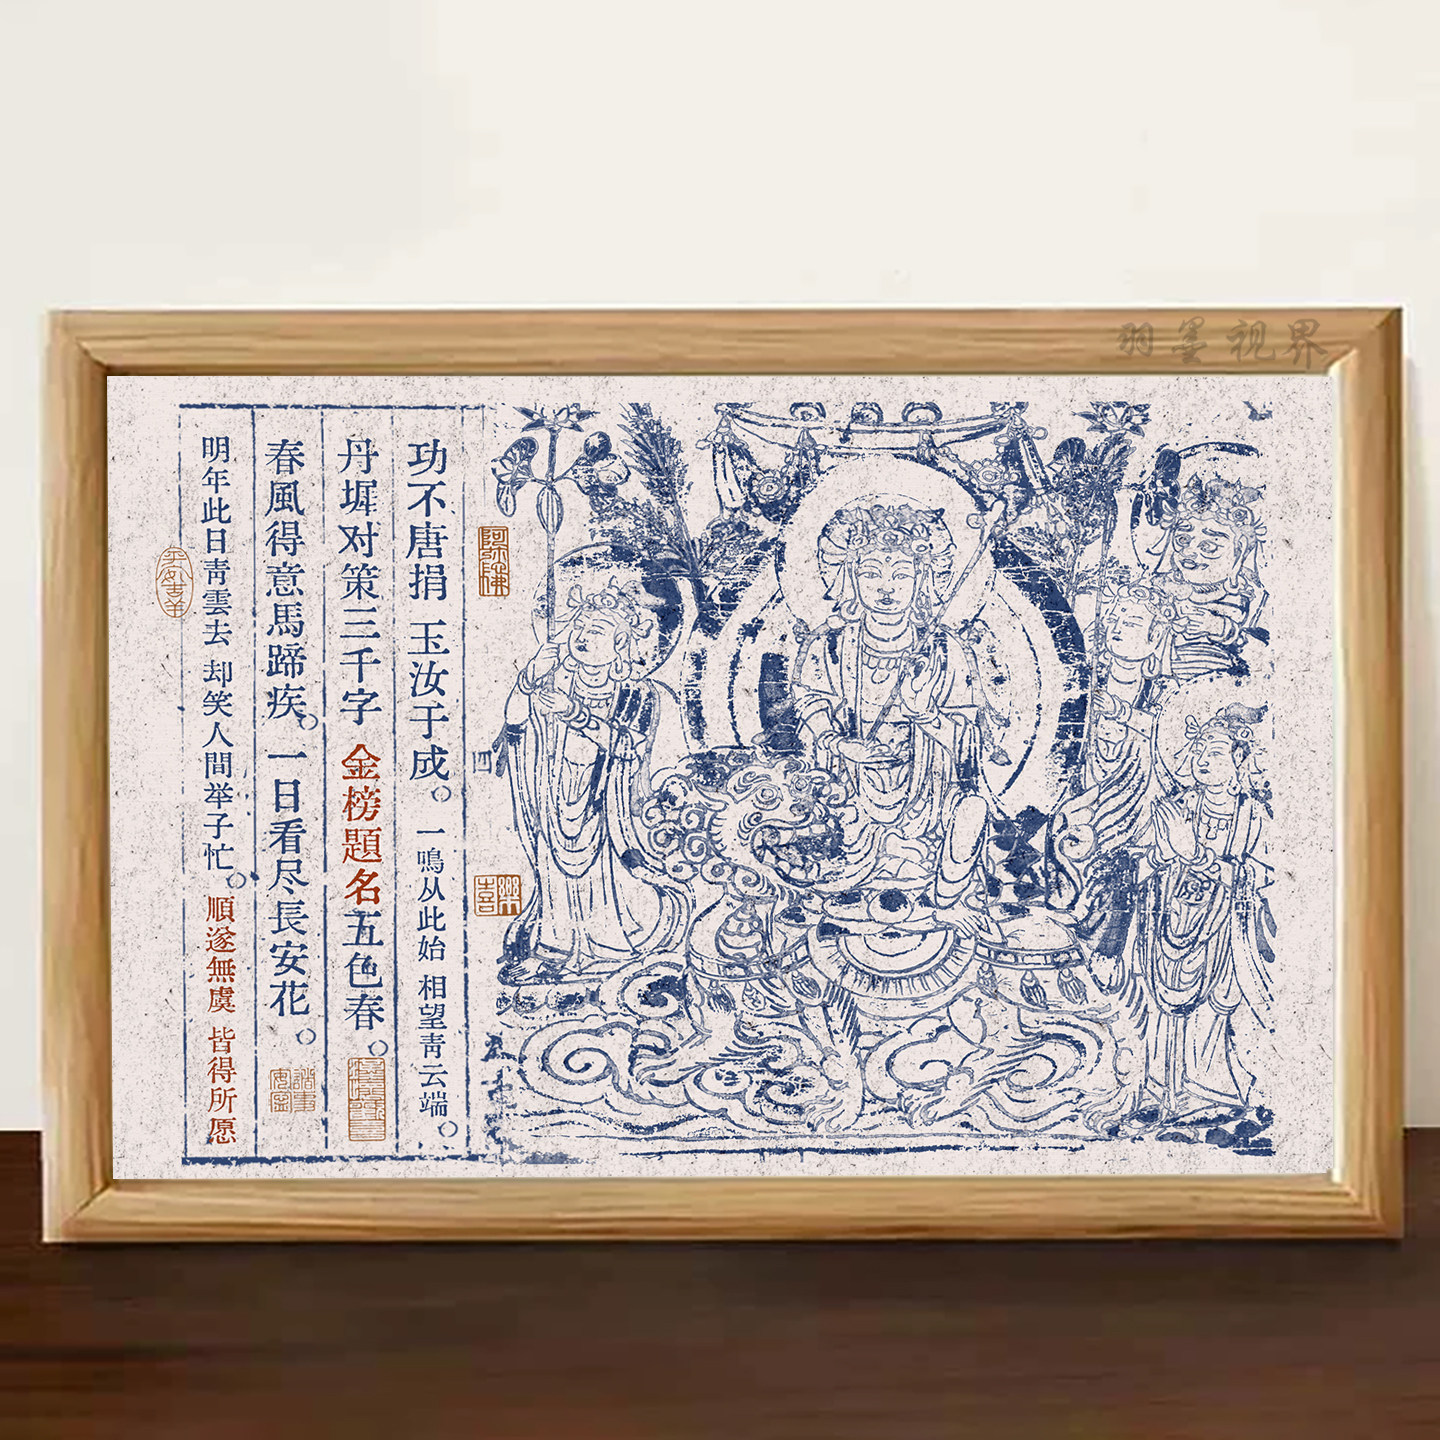 羽墨视界
功不唐捐 玉汝于成。一鳴从此始 相望青云端。
丹墀对策三千字 金榜題名五色春。
春風得意馬蹄疾。一日看尽長安花。
明年此日青雲去 却笑人間举子忙。順遂無虞 皆得所愿